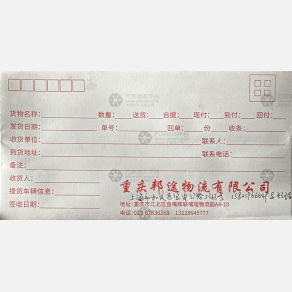 货物名称： 数量： 送货： 自提： 现付： 到付： 回付：
发货日期： 单号： 回单： 份 收条：
收货单位： 联系人：
到货地址： 联系电话：
备注：
收货人：
提货车辆信息：
签收日期：
重庆邦途物流有限公司
地址：重庆市江北区鱼嘴辉联埔程物流园A4-10
电话：023-67836268 13228645777